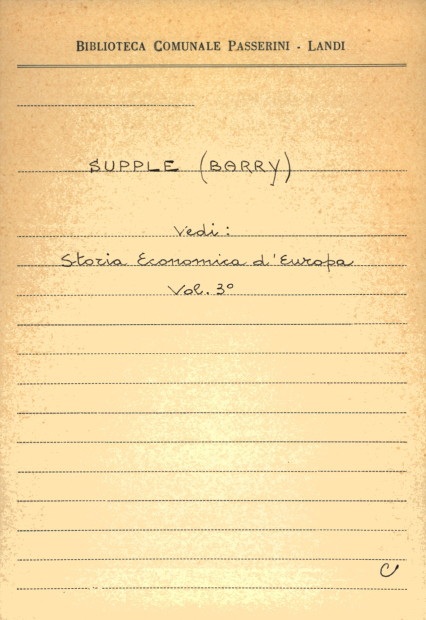 BIBLIOTECA COMUNALE PASSERINI - LANDI
SUPPLE (BARRY)
Vedi:
Storia Economica d'Europa
Vol. 3º
C